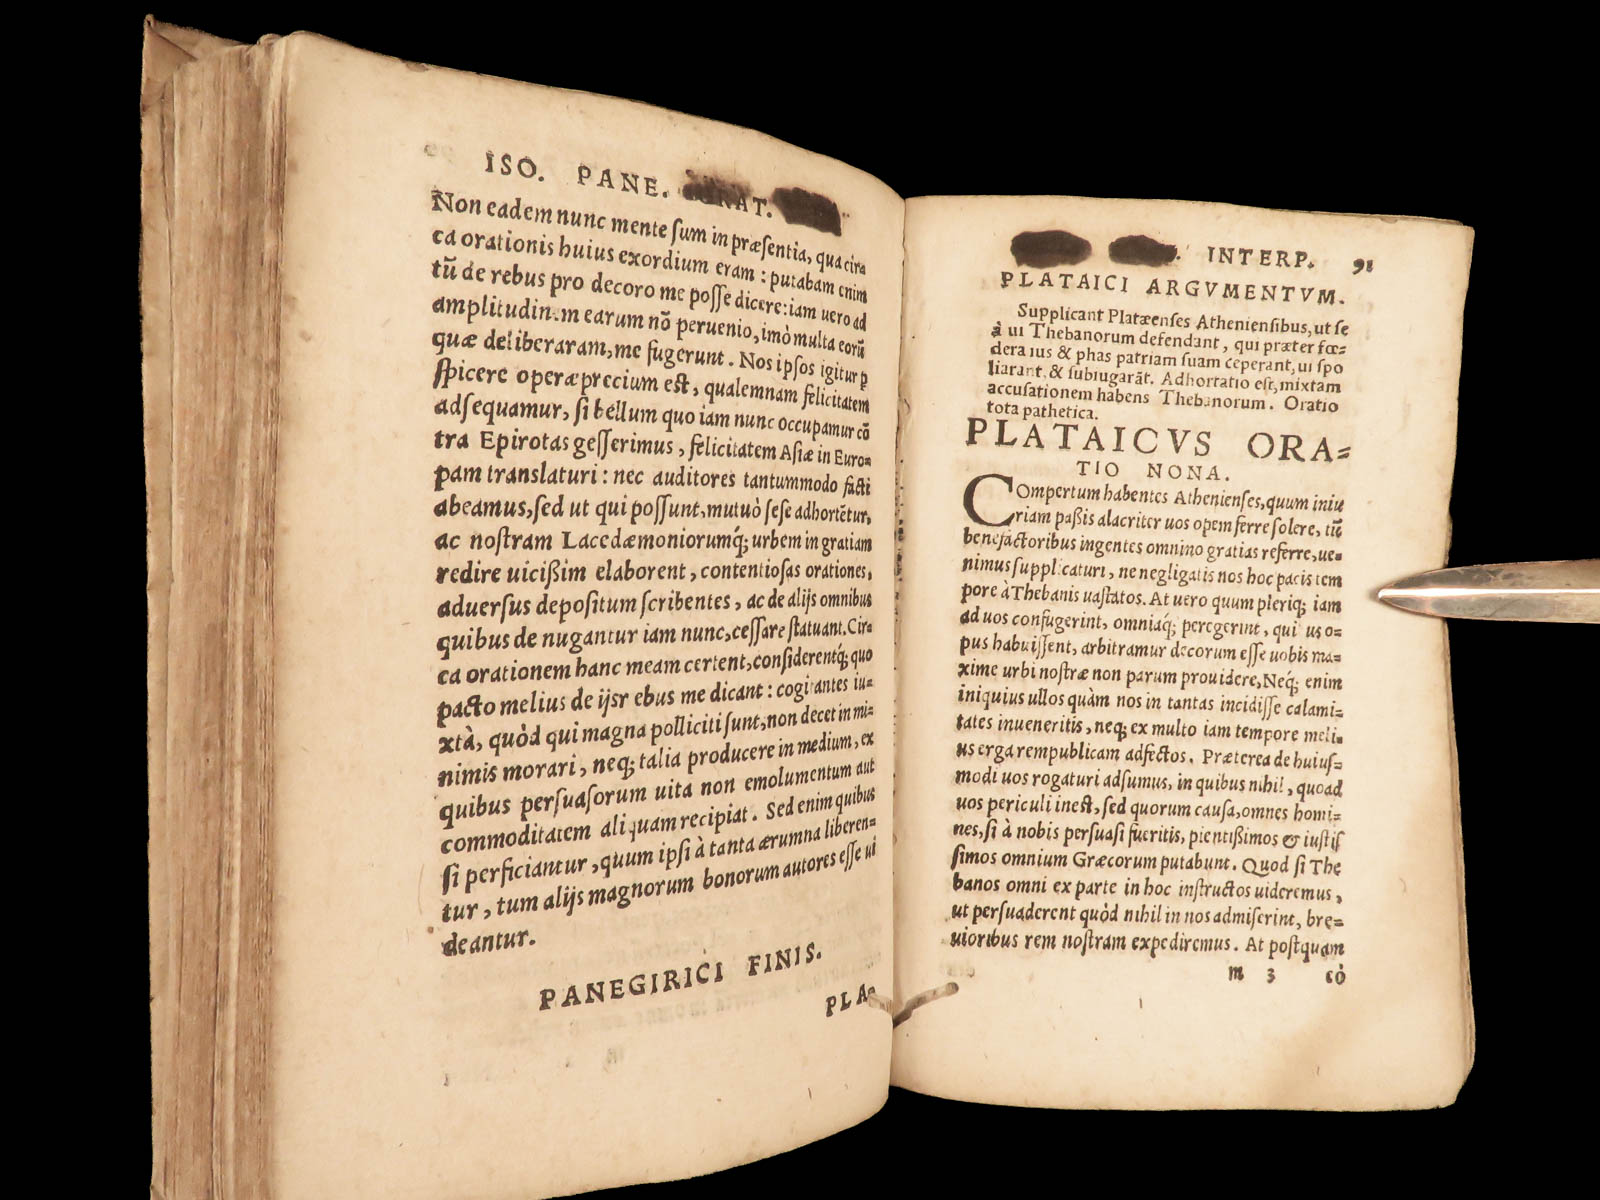 ISO. PANE. ORAT.
Non eadem nunc mente ſum in præſentia, qua circa
ca orationis huius exordium eram: putabam enim
tũ de rebus pro decoro me poſſe dicere: iam uero ad
amplitudinem earum nõ peruenio, imò multa eorũ
quæ deliberaram, me fugerunt. Nos ipſos igitur p
ſpicere operæprecium eſt, qualemnam felicitatem
adſequamur, ſi bellum quo iam nunc occupamur cõ
tra Epirotas geſſerimus, felicitatem Aſiæ in Euro-
pam translaturi: nec auditores tantummodo facti
abeamus, ſed ut qui poſſunt, mutuò ſeſe adhortẽtur,
ac noſtram Lacedæmoniorumq́; urbem in gratiam
redire uicißim elaborent, contentioſas orationes,
aduerſus depoſitum ſcribentes, ac de alijs omnibus
quibus de nugantur iam nunc, ceſſare ſtatuant. Cir-
ca orationem hanc meam certent, conſiderentq́; quo
pacto melius de ijsr ebus me dicant: cogitantes iu-
xtà, quòd qui magna polliciti ſunt, non decet in mi-
nimis morari, neq; talia producere in medium, ex
quibus perſuaſorum uita non emolumentum aut
commoditatem aliquam recipiat. Sed enim quibus
ſi perficiantur, quum ipſi à tanta ærumna liberen-
tur, tum alijs magnorum bonorum autores eſſe ui
deantur.
PANEGIRICI FINIS.
PLA-
INTERP. 91
PLATAICI ARGVMENTVM.
Supplicant Platæenſes Athenienſibus, ut ſe
à ui Thebanorum defendant, qui præter fœ-
dera ius & phas patriam ſuam ceperant, ui ſpo
liarant, & ſubiugarãt. Adhortatio eſt, mixtam
accuſationem habens Thebanorum. Oratio
tota pathetica.
PLATAICVS ORA-
TIO NONA.
COmpertum habentes Athenienſes, quum iniu
riam paßis alacriter uos opem ferre ſolere, tũ
benefactoribus ingentes omnino gratias referre, ue-
nimus ſupplicaturi, ne negligatis nos hoc pacis tem
pore à Thebanis uaſtatos. At uero quum pleriq; iam
ad uos confugerint, omniaq́; peregerint, qui us o-
pus habuiſſent, arbitramur decorum eſſe uobis ma-
xime urbi noſtræ non parum prouidere, Neq́; enim
iniquius ullos quàm nos in tantas incidiſſe calami-
tates inueneritis, neq; ex multo iam tempore meli-
us erga rempublicam adfectos. Præterea de huiuſ-
modi uos rogaturi adſumus, in quibus nihil, quoad
uos periculi ineſt, ſed quorum cauſa, omnes homi-
nes, ſi à nobis perſuaſi fueritis, pientißimos & iuſtiſ
ſimos omnium Græcorum putabunt. Quod ſi The
banos omni ex parte in hoc inſtructos uideremus,
ut perſuaderent quòd nihil in nos admiſerint, bre-
uioribus rem noſtram expediremus. At poſtquam
m 3 cò